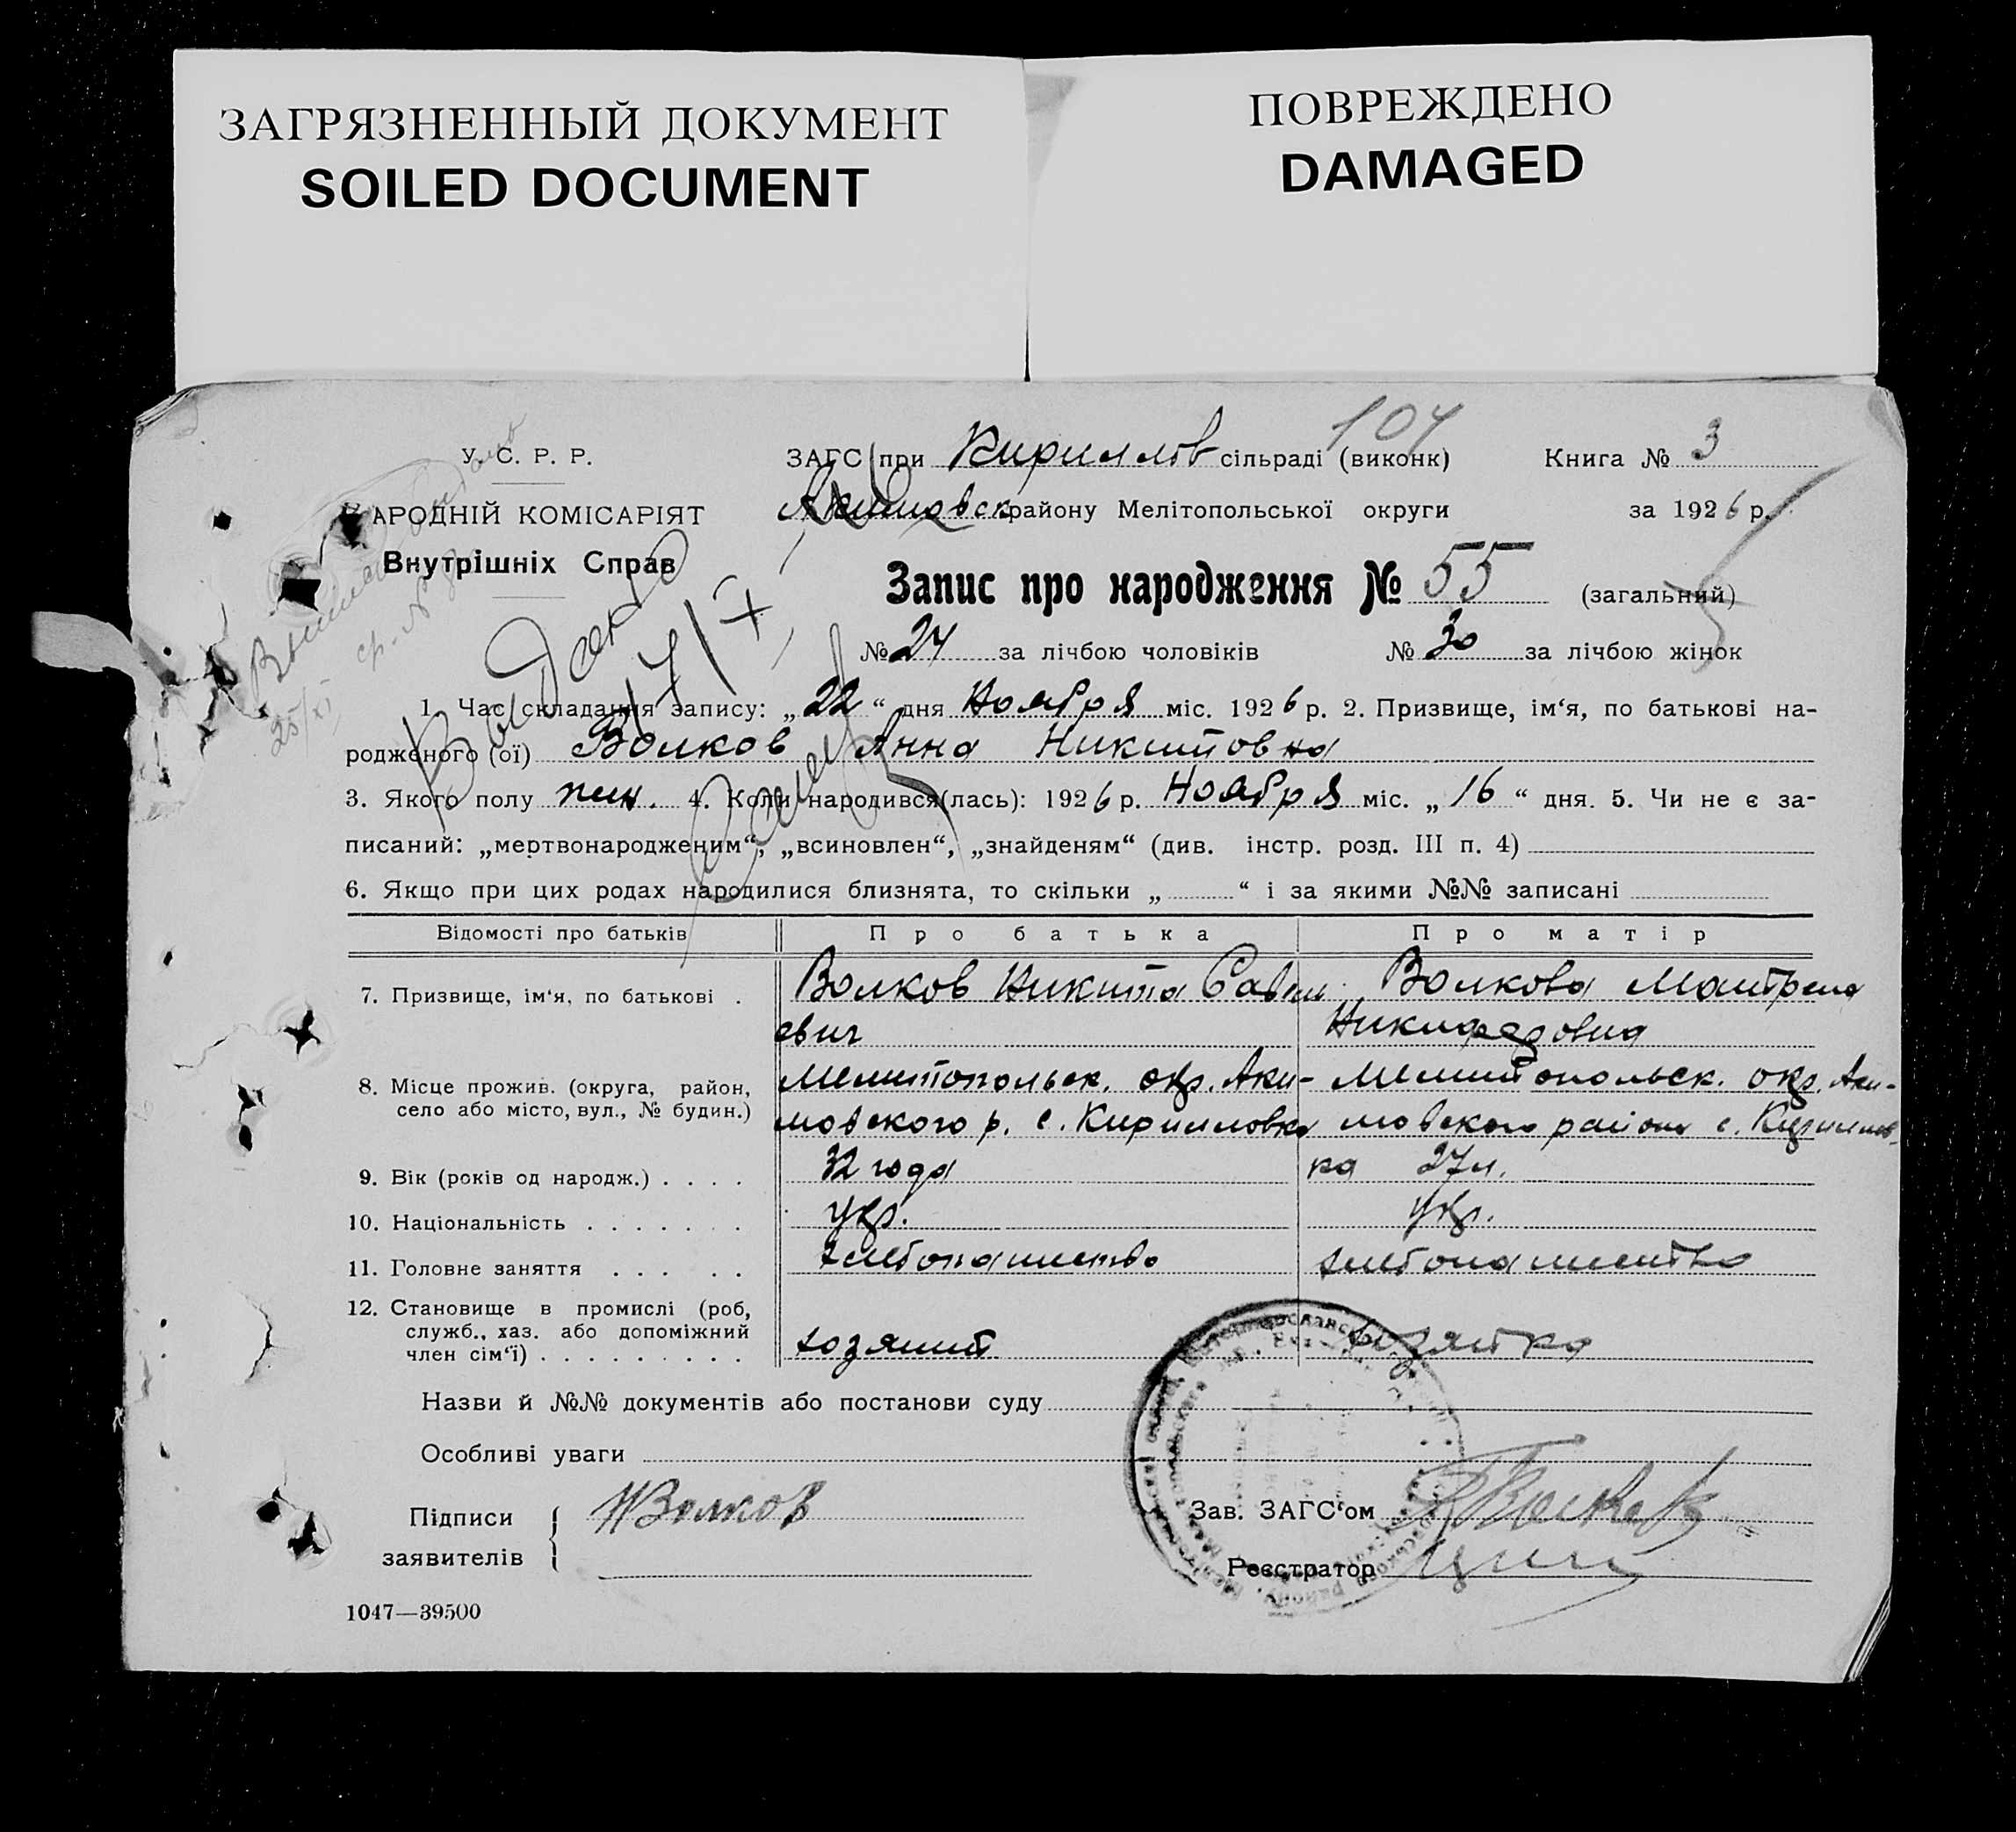 ЗАГРЯЗНЕННЫЙ ДОКУМЕНТ
SOILED DOCUMENT
ПОВРЕЖДЕНО
DAMAGED
104
У. С. Р. Р.
АРОДНІЙ КОМІСАРІЯТ
Внутрішніх Справ
ЗАГС при Кириллов сільраді (виконк) Книга № 3
Акимовск району Мелітопольської округи за 1926 р.
Запис про народження № 55 (загальний)
№ 24 за лічбою чоловіків № 30 за лічбою жінок
1. Час складання запису: „22“ дня Ноября міс. 1926 р. 2. Призвище, ім‘я, по батькові на-
родженого (ої) Волков Анна Никитовна
3. Якого полу жен. 4. Коли народився(лась): 1926 р. Ноября міс. „16“ дня. 5. Чи не є за-
писаний: „мертвонародженим“, „всиновлен“, „знайденям“ (див. інстр. розд. III п. 4)
6. Якщо при цих родах народилися близнята, то скільки „ “ і за якими №№ записані
Відомості про батьків Про батька Про матір
7. Призвище, ім‘я, по батькові . Волков Никита Савел Волкова Мотрена
евич Никифоровна
8. Місце прожив. (округа, район, Мелитопольск. окр. Аки- Мелитопольск. окр. Аки-
село або місто, вул., № будин.) мовского р. с. Кирилловка мовского района с. Кириллов-
9. Вік (років од народж.) . . . . 32 года ка 27 л.
10. Національність . . . . . . . укр. укр.
11. Головне заняття . . . . . хлебопашество хлебопашество
12. Становище в промислі (роб,
служб., хаз. або допоміжний
член сім‘ї) . . . . . . . . . хозяин хозяйка
Назви й №№ документів або постанови суду
Особливі уваги
Підписи НВолков
заявителів
Зав. ЗАГС‘ом
Реєстратор
1047—39500
Выдано
25/XI